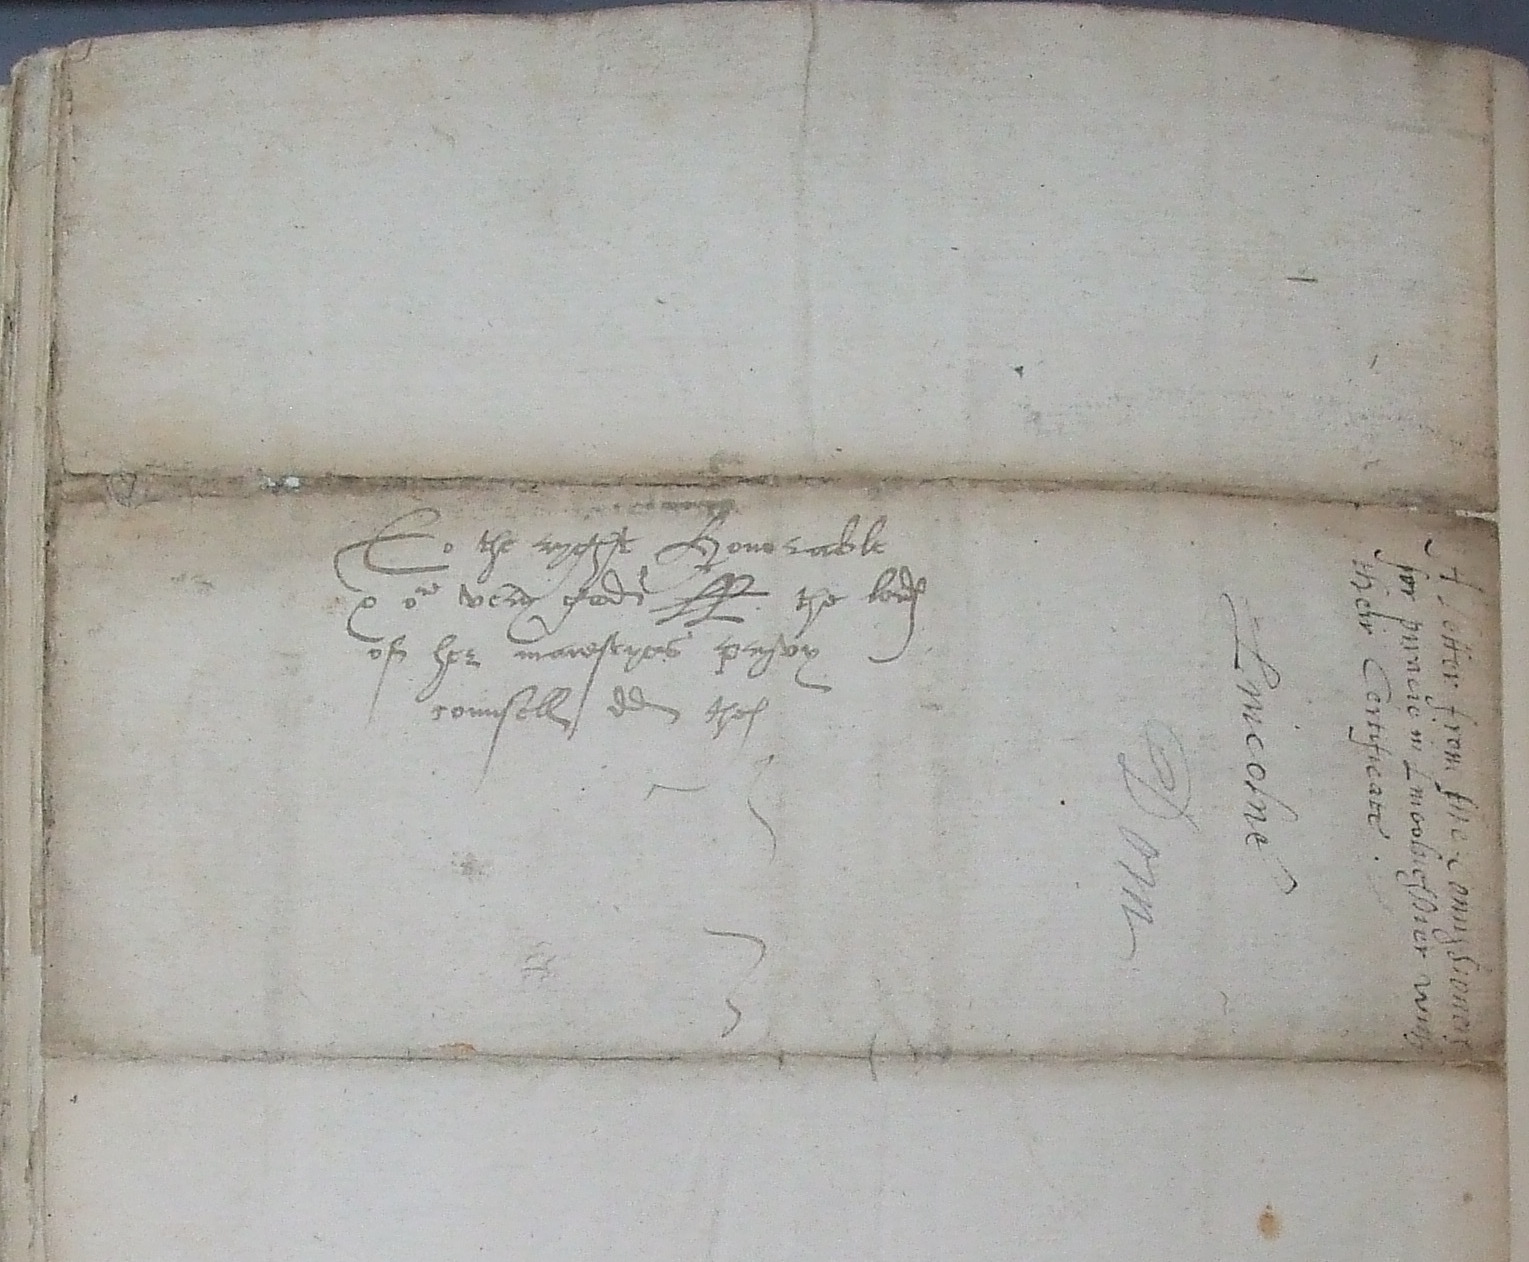 To the ryght Honorable
& or very good ll the lords
of her maiestyes pryvy
counsell dd thes
A letter from the Comyssioners
for pyracie in Lincolneshier with
their Certificate.
Lincolne
Dom